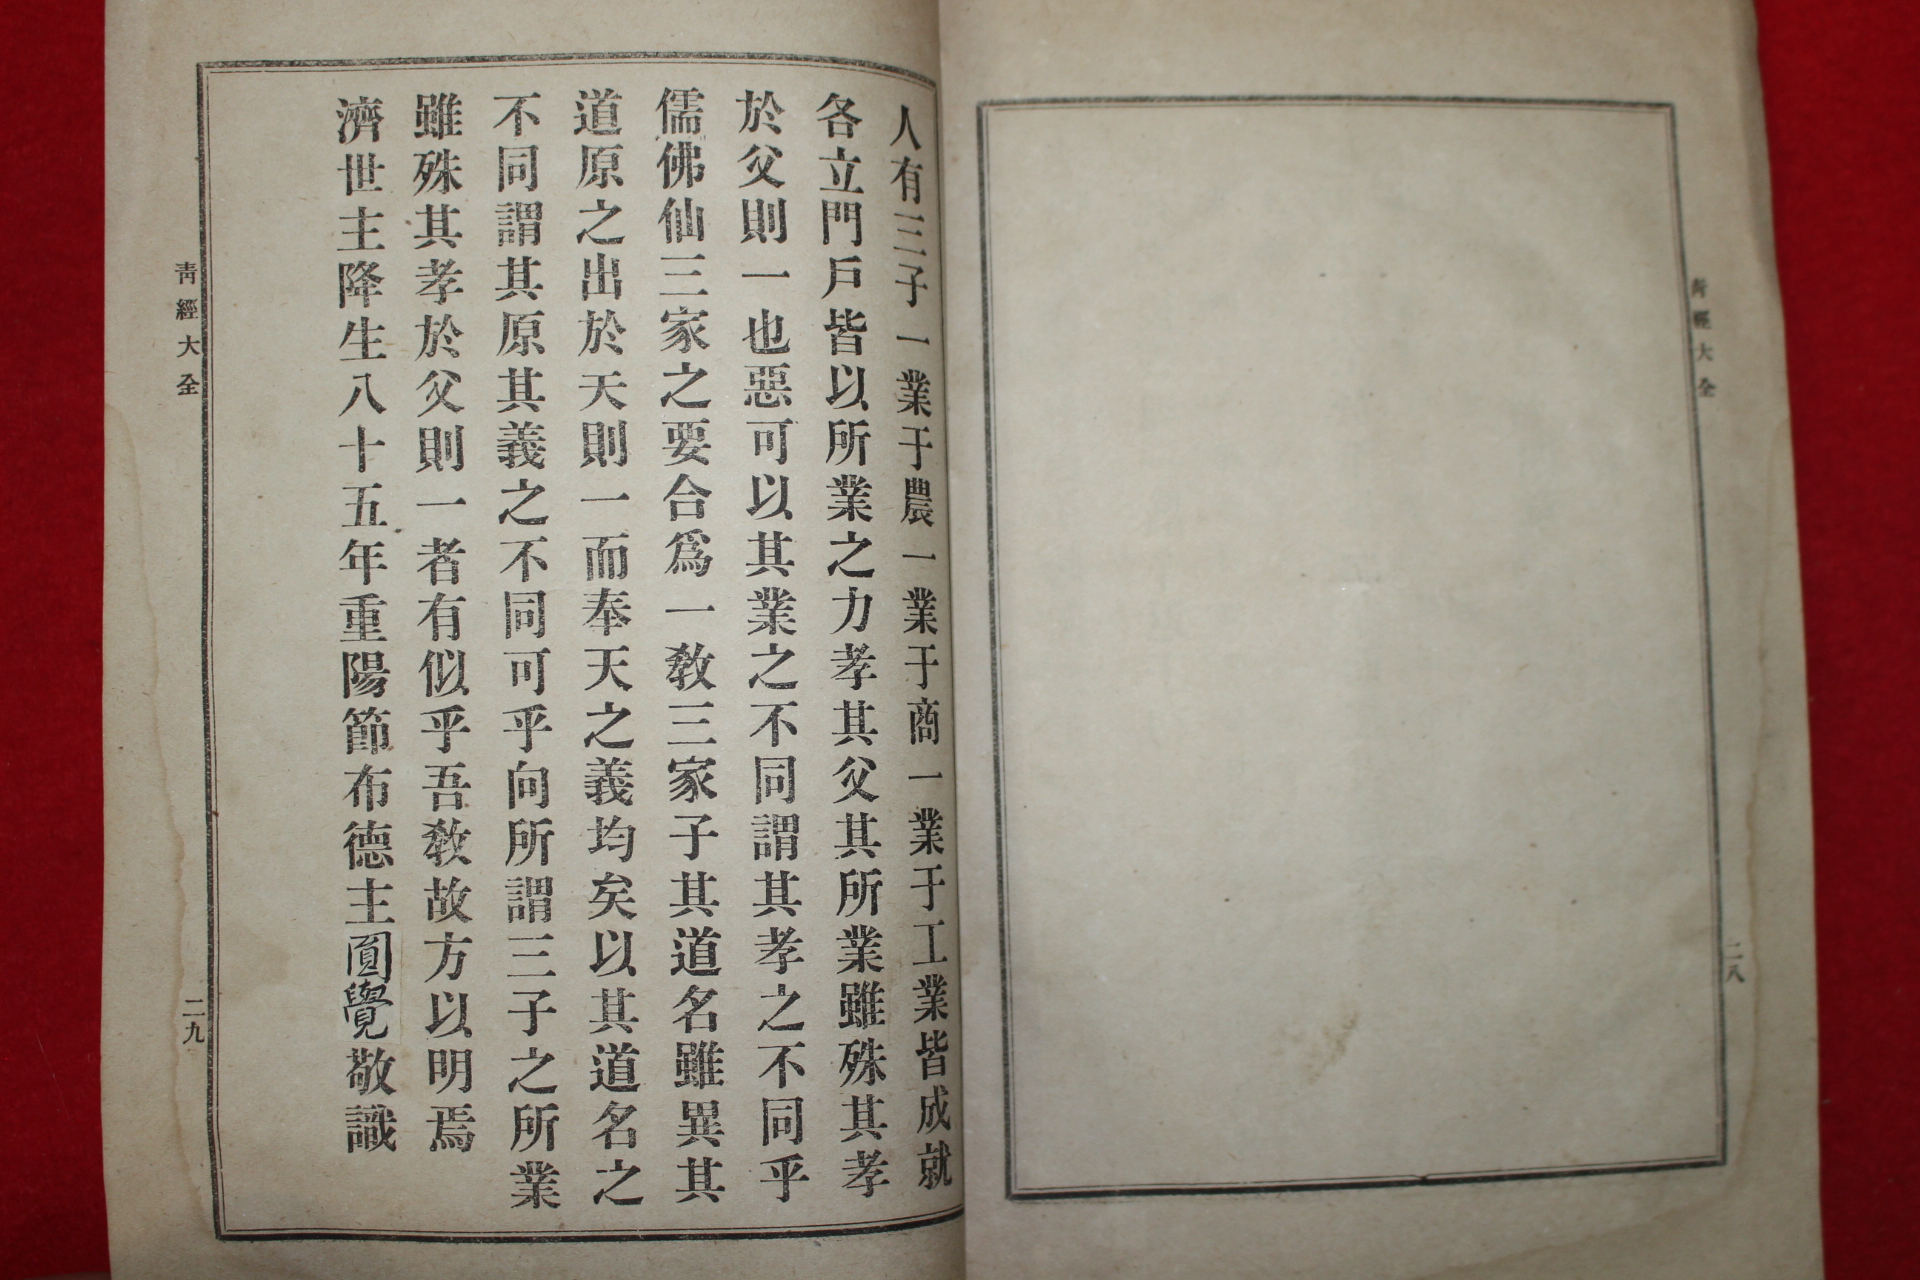 靑經大全
二八
人有三子一業于農一業于商一業于工業皆成就
各立門戶皆以所業之力孝其父其所業雖殊其孝
於父則一也惡可以其業之不同謂其孝之不同乎
儒佛仙三家之要合爲一敎三家子其道名雖異其
道原之出於天則一而奉天之義均矣以其道名之
不同謂其原其義之不同可乎向所謂三子之所業
雖殊其孝於父則一者有似乎吾敎故方以明焉
濟世主降生八十五年重陽節布德主圓覺敬識
靑經大全
二九